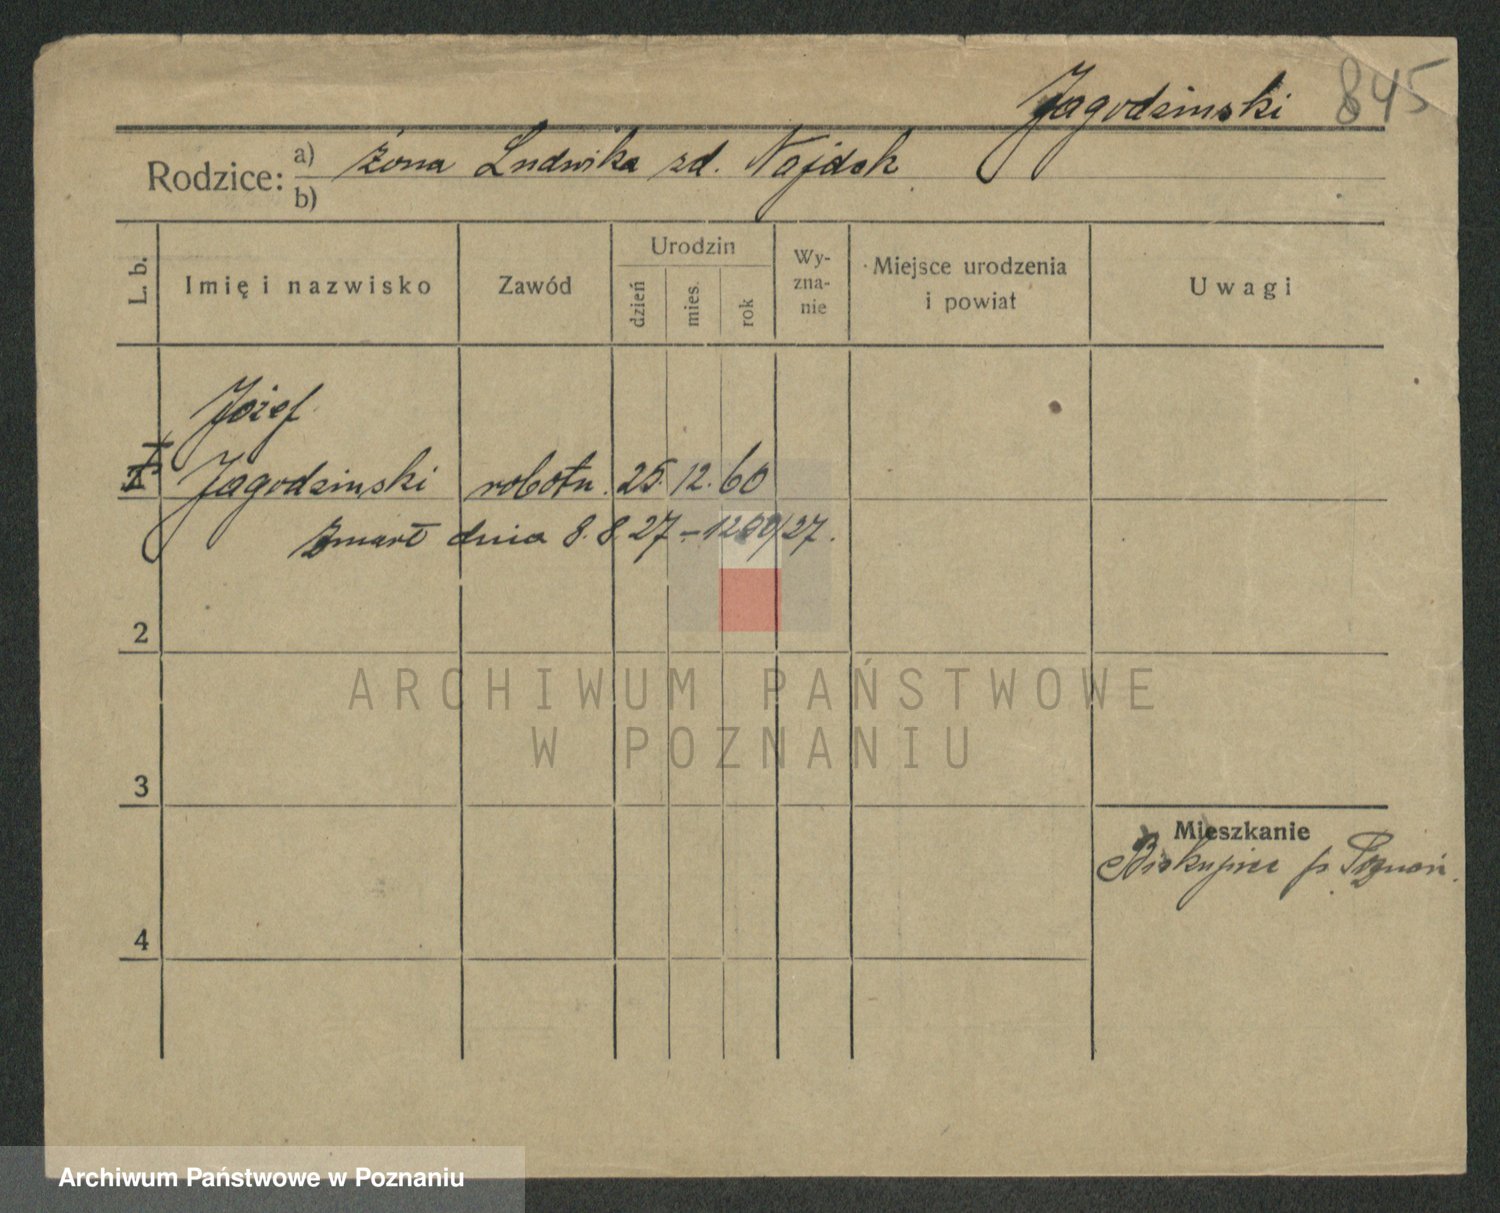 Jagodzinski 845
Rodzice: a) żona Ludwika zd. Najdek
b)
L. b. Imię i nazwisko Zawód Urodzin dzień mies. rok Wyznanie Miejsce urodzenia i powiat Uwagi
Józef
1 Jagodzinski robotn. 25. 12. 60
zmarł dnia 8. 8. 27 – /27.
2
ARCHIWUM PAŃSTWOWE
W POZNANIU
3
Mieszkanie
Biskupice p Poznań.
4
Archiwum Państwowe w Poznaniu